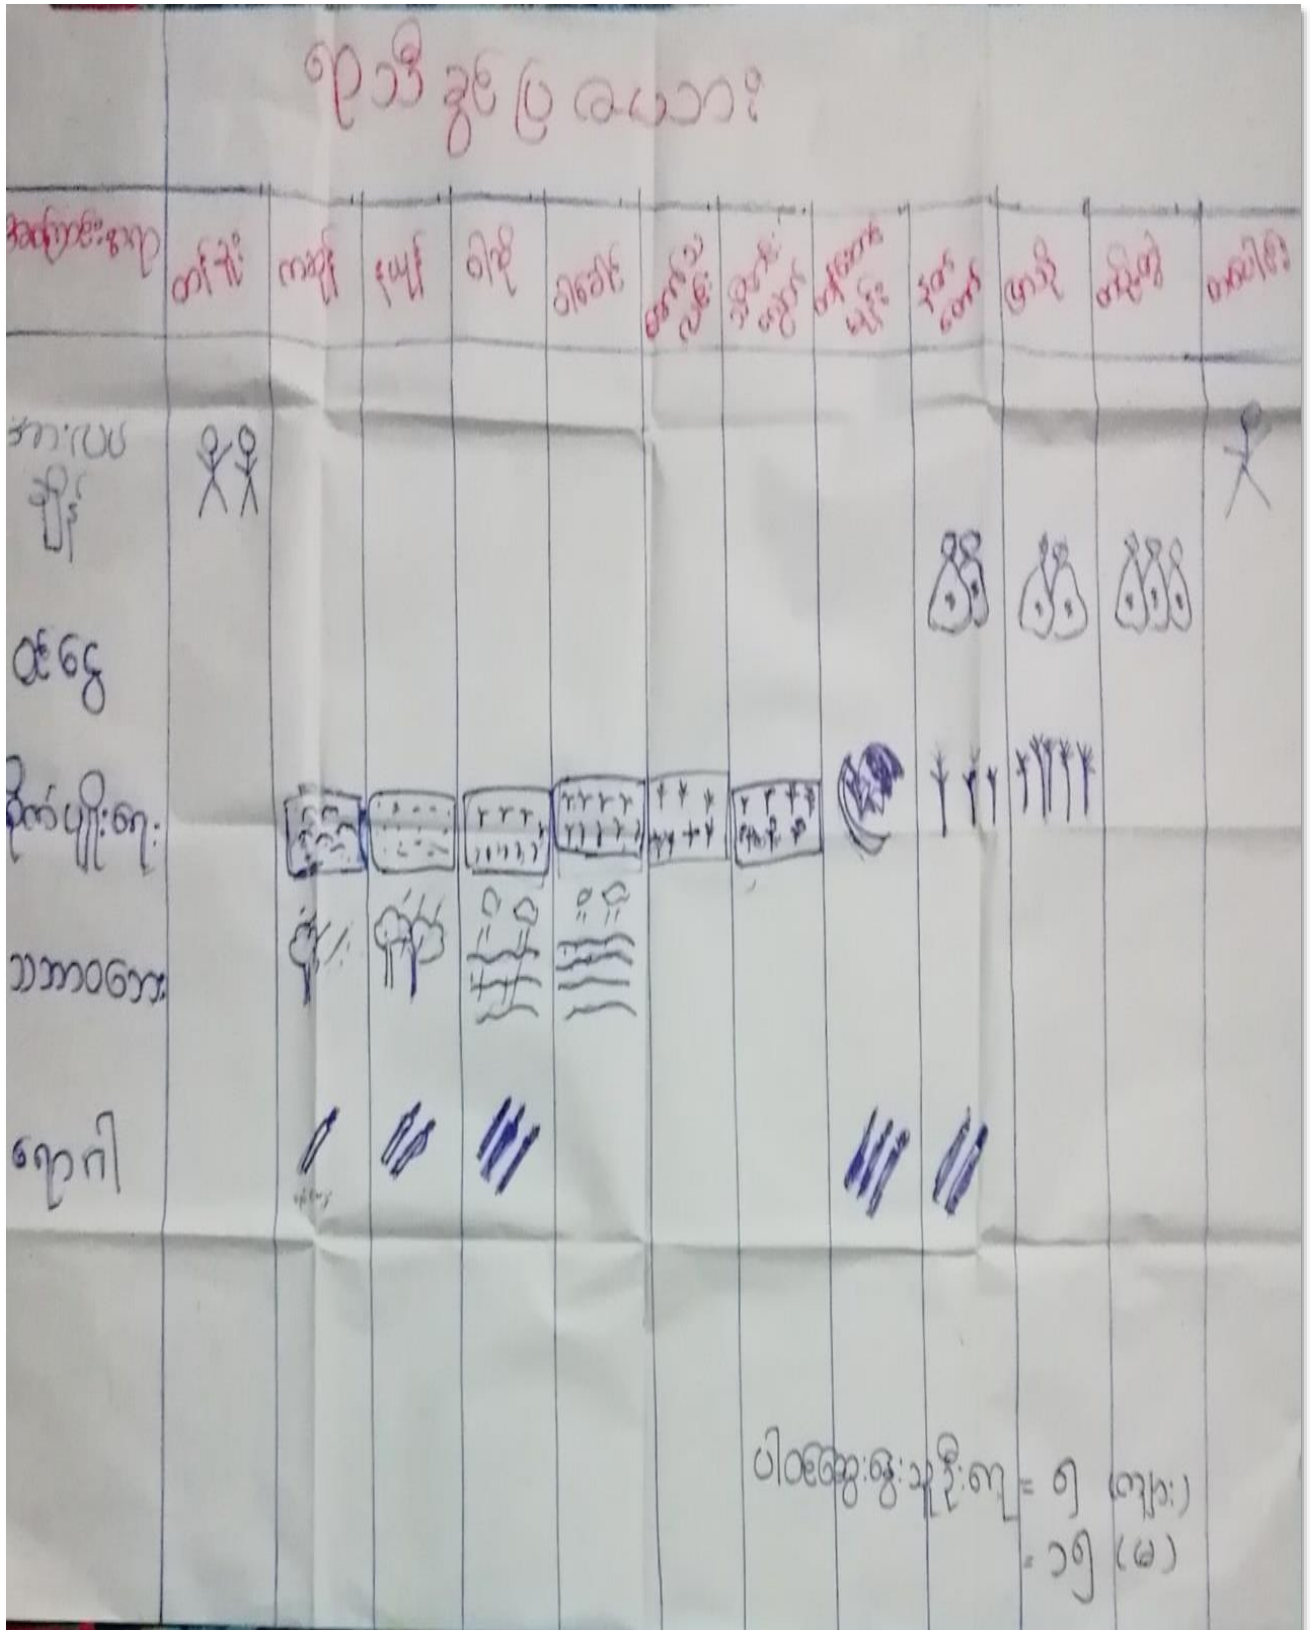 ရာသီခွင်ပြ ယား
တန်ခူး
ကဆုန်
နယုန်
ဝါဆို
ဝါခေါင်
တော်သလင်း
သီတင်းကျွတ်
တန်ဆောင်မုန်း
နတ်တော်
ပြာသို
တပို့တွဲ
တပေါင်း
အားလပ်
ချိန်
ဝင်ငွေ
စိုက်ပျိုးရေး
သဘာဝဘေး
ရောဂါ
ပါဝင်ဆွေးနွေးသူဦးရေ = ၅ (ကျား)
= ၁၅ (မ)